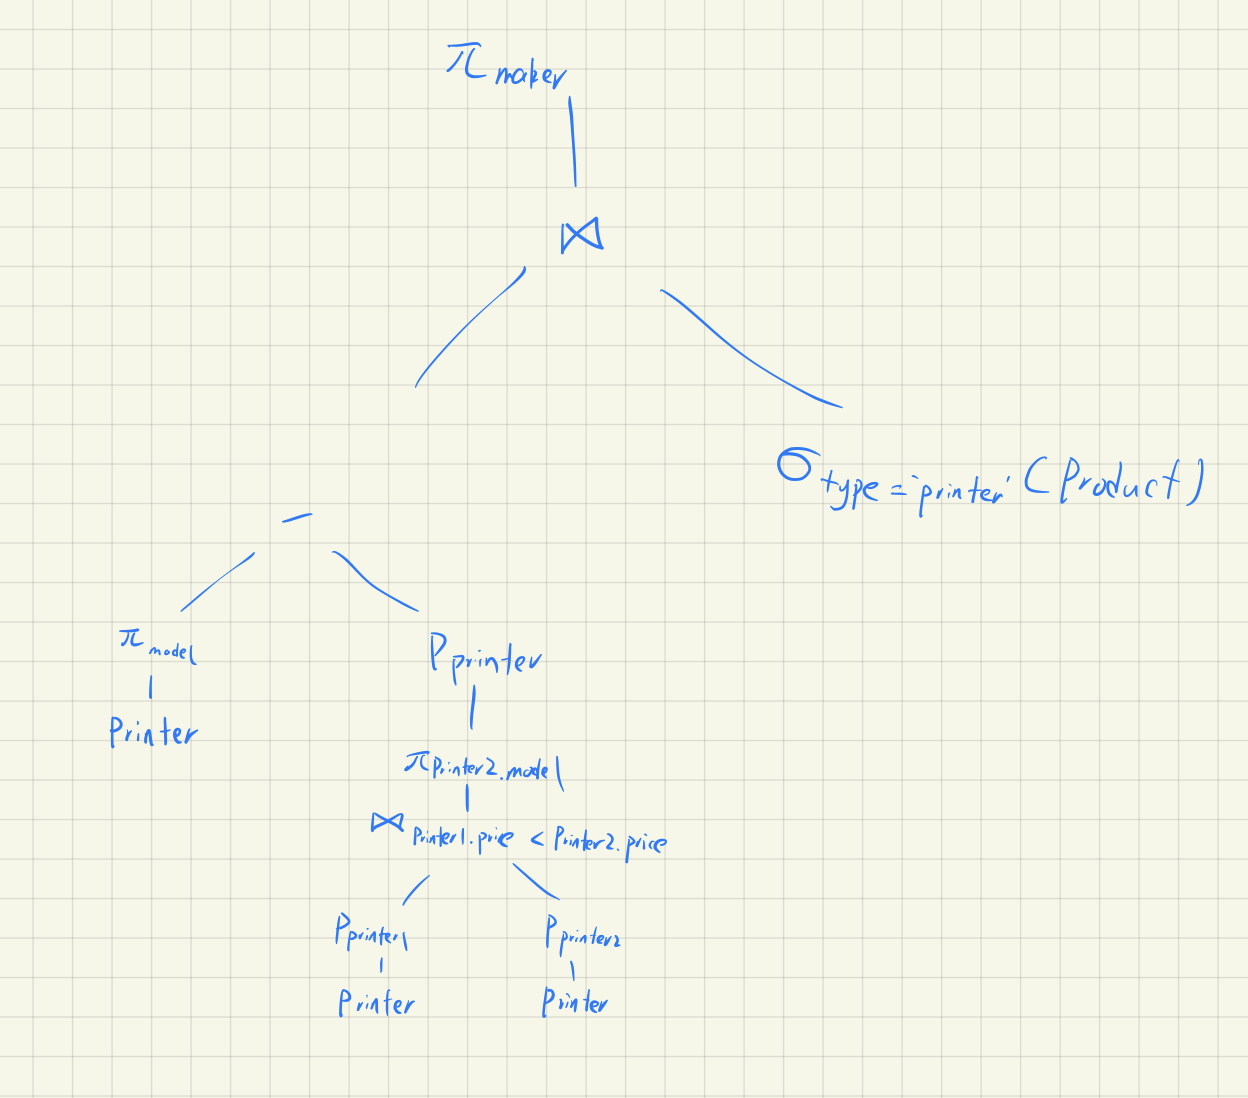 π maker
⋈
σ type = 'printer' (Product)
−
π model
ρ printer
Printer
π Printer2.model
⋈ Printer1.price < Printer2.price
ρ printer1
ρ printer2
Printer
Printer